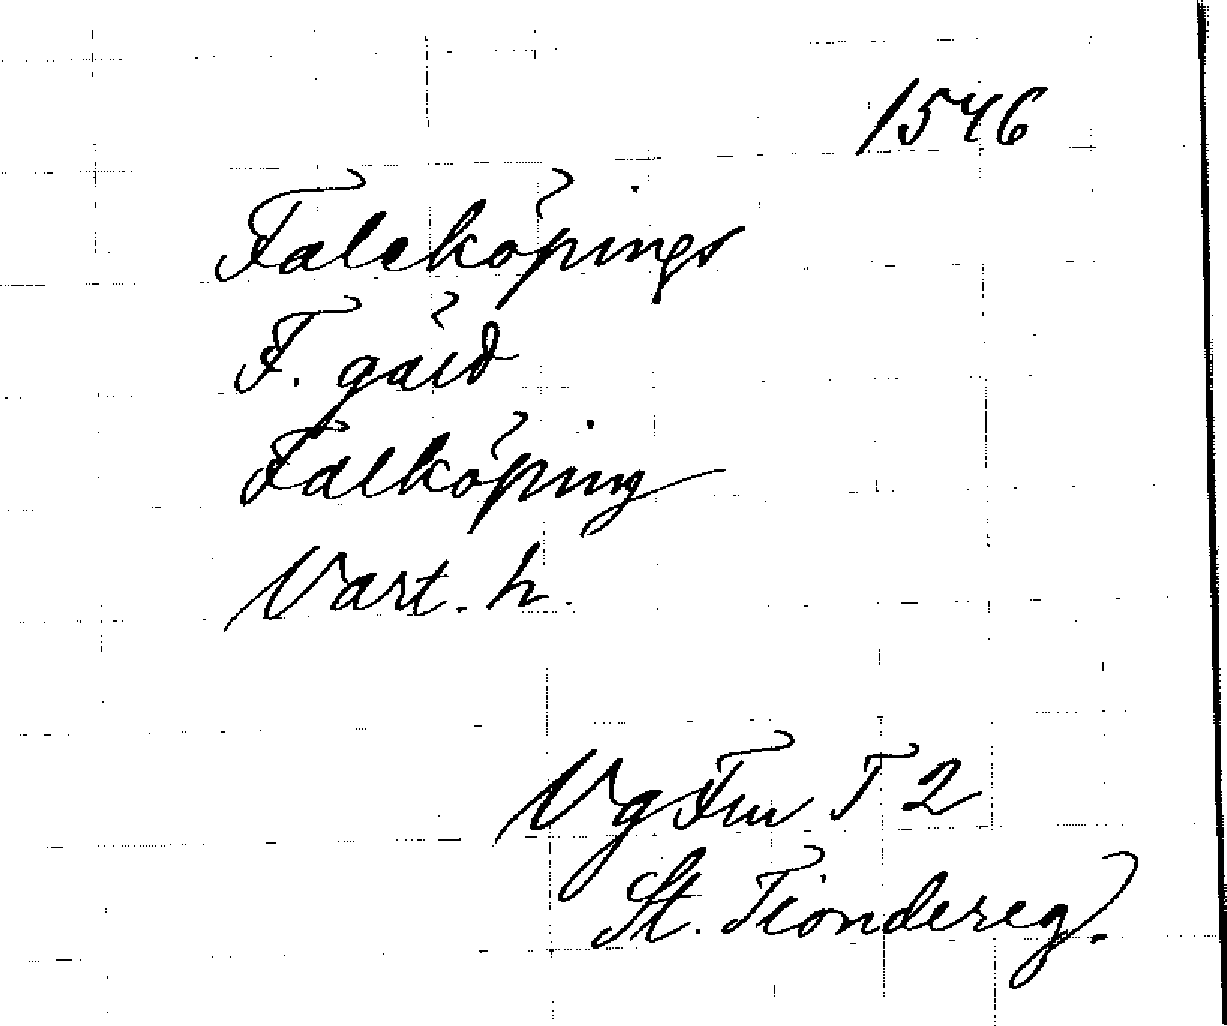 1546
Faleköpings
F. gäld
Falköping
Vart. h.
Vg Fru T 2
St. Tiondereg.